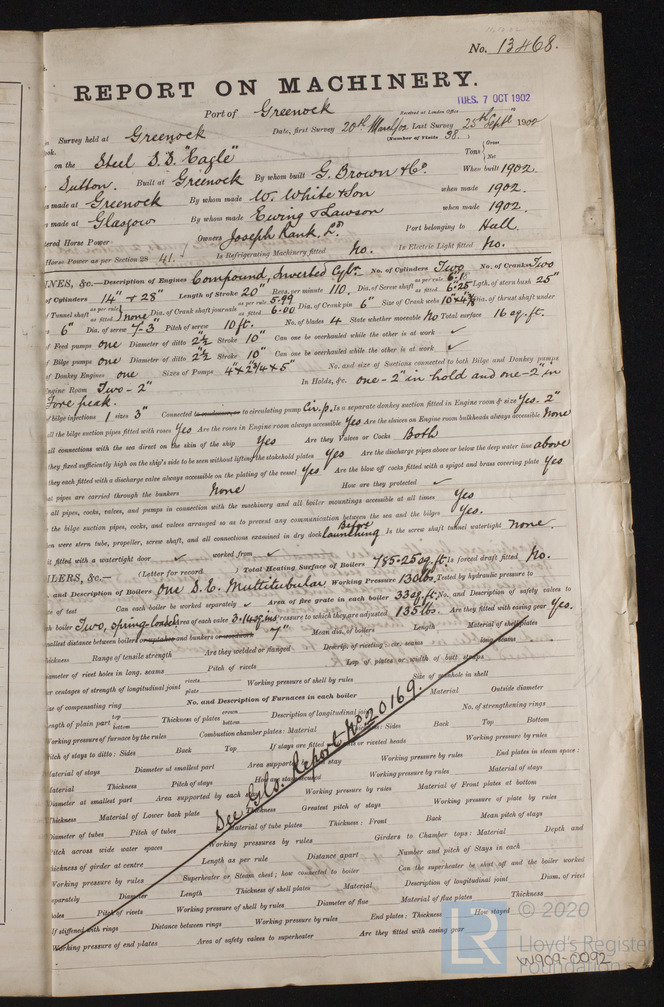 No. 13468.
REPORT ON MACHINERY.
Port of Greenock
Received at London Office TUES. 7 OCT 1902
Survey held at Greenock Date, first Survey 20th March/02 Last Survey 25th Septr 1902
(Number of Visits 38.)
on the Steel S.S. "Eagle" Tons Gross Net
Sutton. Built at Greenock By whom built G. Brown & Co. When built 1902.
s made at Greenock By whom made W. White & Son when made 1902.
s made at Glasgow By whom made Ewing & Lawson when made 1902.
ered Horse Power Owners Joseph Rank Ld Port belonging to Hull.
Horse Power as per Section 28 41. Is Refrigerating Machinery fitted No. Is Electric Light fitted No.
INES, &c.—Description of Engines Compound, Inverted Cylr. No. of Cylinders Two No. of Cranks Two
of Cylinders 14" & 28" Length of Stroke 20" Revs. per minute 110 Dia. of Screw shaft as per rule as fitted 6.25 Lgth. of stern bush 25"
of Tunnel shaft as per rule as fitted none Dia. of Crank shaft journals as per rule 5.99 as fitted 6.00 Dia. of Crank pin 6" Size of Crank webs Dia. of thrust shaft under
s 6" Dia. of screw 7-3" Pitch of screw 10 ft. No. of blades 4 State whether moveable No Total surface 16 sq. ft.
of Feed pumps one Diameter of ditto 2½" Stroke 10" Can one be overhauled while the other is at work ✓
of Bilge pumps one Diameter of ditto 2½" Stroke 10" Can one be overhauled while the other is at work ✓
of Donkey Engines one Sizes of Pumps 4" x 2¾" x 5" No. and size of Suctions connected to both Bilge and Donkey pumps
Engine Room Two - 2" In Holds, &c. one - 2" in hold and one - 2" in
Fore peak.
of bilge injections 1 sizes 3" Connected to condenser, or to circulating pump Cir. p. Is a separate donkey suction fitted in Engine room & size Yes. 2"
all the bilge suction pipes fitted with roses Yes Are the roses in Engine room always accessible Yes Are the sluices on Engine room bulkheads always accessible None
all connections with the sea direct on the skin of the ship Yes Are they Valves or Cocks Both
they fixed sufficiently high on the ship's side to be seen without lifting the stokehold plates Yes Are the discharge pipes above or below the deep water line above
they each fitted with a discharge valve always accessible on the plating of the vessel Yes Are the blow off cocks fitted with a spigot and brass covering plate Yes
at pipes are carried through the bunkers None How are they protected ✓
all pipes, cocks, valves, and pumps in connection with the machinery and all boiler mountings accessible at all times Yes
the bilge suction pipes, cocks, and valves arranged so as to prevent any communication between the sea and the bilges Yes.
en were stern tube, propeller, screw shaft, and all connections examined in dry dock Before launching Is the screw shaft tunnel watertight None.
it fitted with a watertight door ✓ worked from ✓
ILERS, &c.— (Letter for record ) Total Heating Surface of Boilers 755.25 sq. ft. Is forced draft fitted No.
and Description of Boilers One S.E. Multitubular Working Pressure 130 lbs Tested by hydraulic pressure to
te of test Can each boiler be worked separately ✓ Area of fire grate in each boiler 33 sq. ft. No. and Description of safety valves to
h boiler Two, Spring-loaded Area of each valve 3.14 sq ins Pressure to which they are adjusted 135 lbs. Are they fitted with easing gear Yes.
mallest distance between boilers or uptakes and bunkers or woodwork 7" Mean dia. of boilers Length Material of shell plates
hickness Range of tensile strength Are they welded or flanged Descrip. of riveting: cir. seams long. seams
iameter of rivet holes in long. seams Pitch of rivets Lap of plates or width of butt straps
er centages of strength of longitudinal joint rivets plate Working pressure of shell by rules Size of manhole in shell
ize of compensating ring No. and Description of Furnaces in each boiler Material Outside diameter
ength of plain part top bottom Thickness of plates crown bottom Description of longitudinal joint No. of strengthening rings
Working pressure of furnace by the rules Combustion chamber plates: Material Thickness: Sides Back Top Bottom
Pitch of stays to ditto: Sides Back Top If stays are fitted with nuts or riveted heads Working pressure by rules
Material of stays Diameter at smallest part Area supported by each stay Working pressure by rules End plates in steam space:
Material Thickness Pitch of stays How are stays secured Working pressure by rules Material of stays
Diameter at smallest part Area supported by each stay Working pressure by rules Material of Front plates at bottom
Thickness Material of Lower back plate Thickness Greatest pitch of stays Working pressure of plate by rules
Diameter of tubes Pitch of tubes Material of tube plates Thickness: Front Back Mean pitch of stays
Pitch across wide water spaces Working pressures by rules Girders to Chamber tops: Material Depth and
thickness of girder at centre Length as per rule Distance apart Number and pitch of Stays in each
Working pressure by rules Superheater or Steam chest; how connected to boiler Can the superheater be shut off and the boiler worked
separately Diameter Length Thickness of shell plates Material Description of longitudinal joint Diam. of rivet
holes Pitch of rivets Working pressure of shell by rules Diameter of flue Material of flue plates Thickness
If stiffened with rings Distance between rings Working pressure by rules End plates: Thickness How stayed
Working pressure of end plates Area of safety valves to superheater Are they fitted with easing gear
See Gls. Report No. 20169.
LR © 2020
Lloyd's Register
Foundation
W909-0092